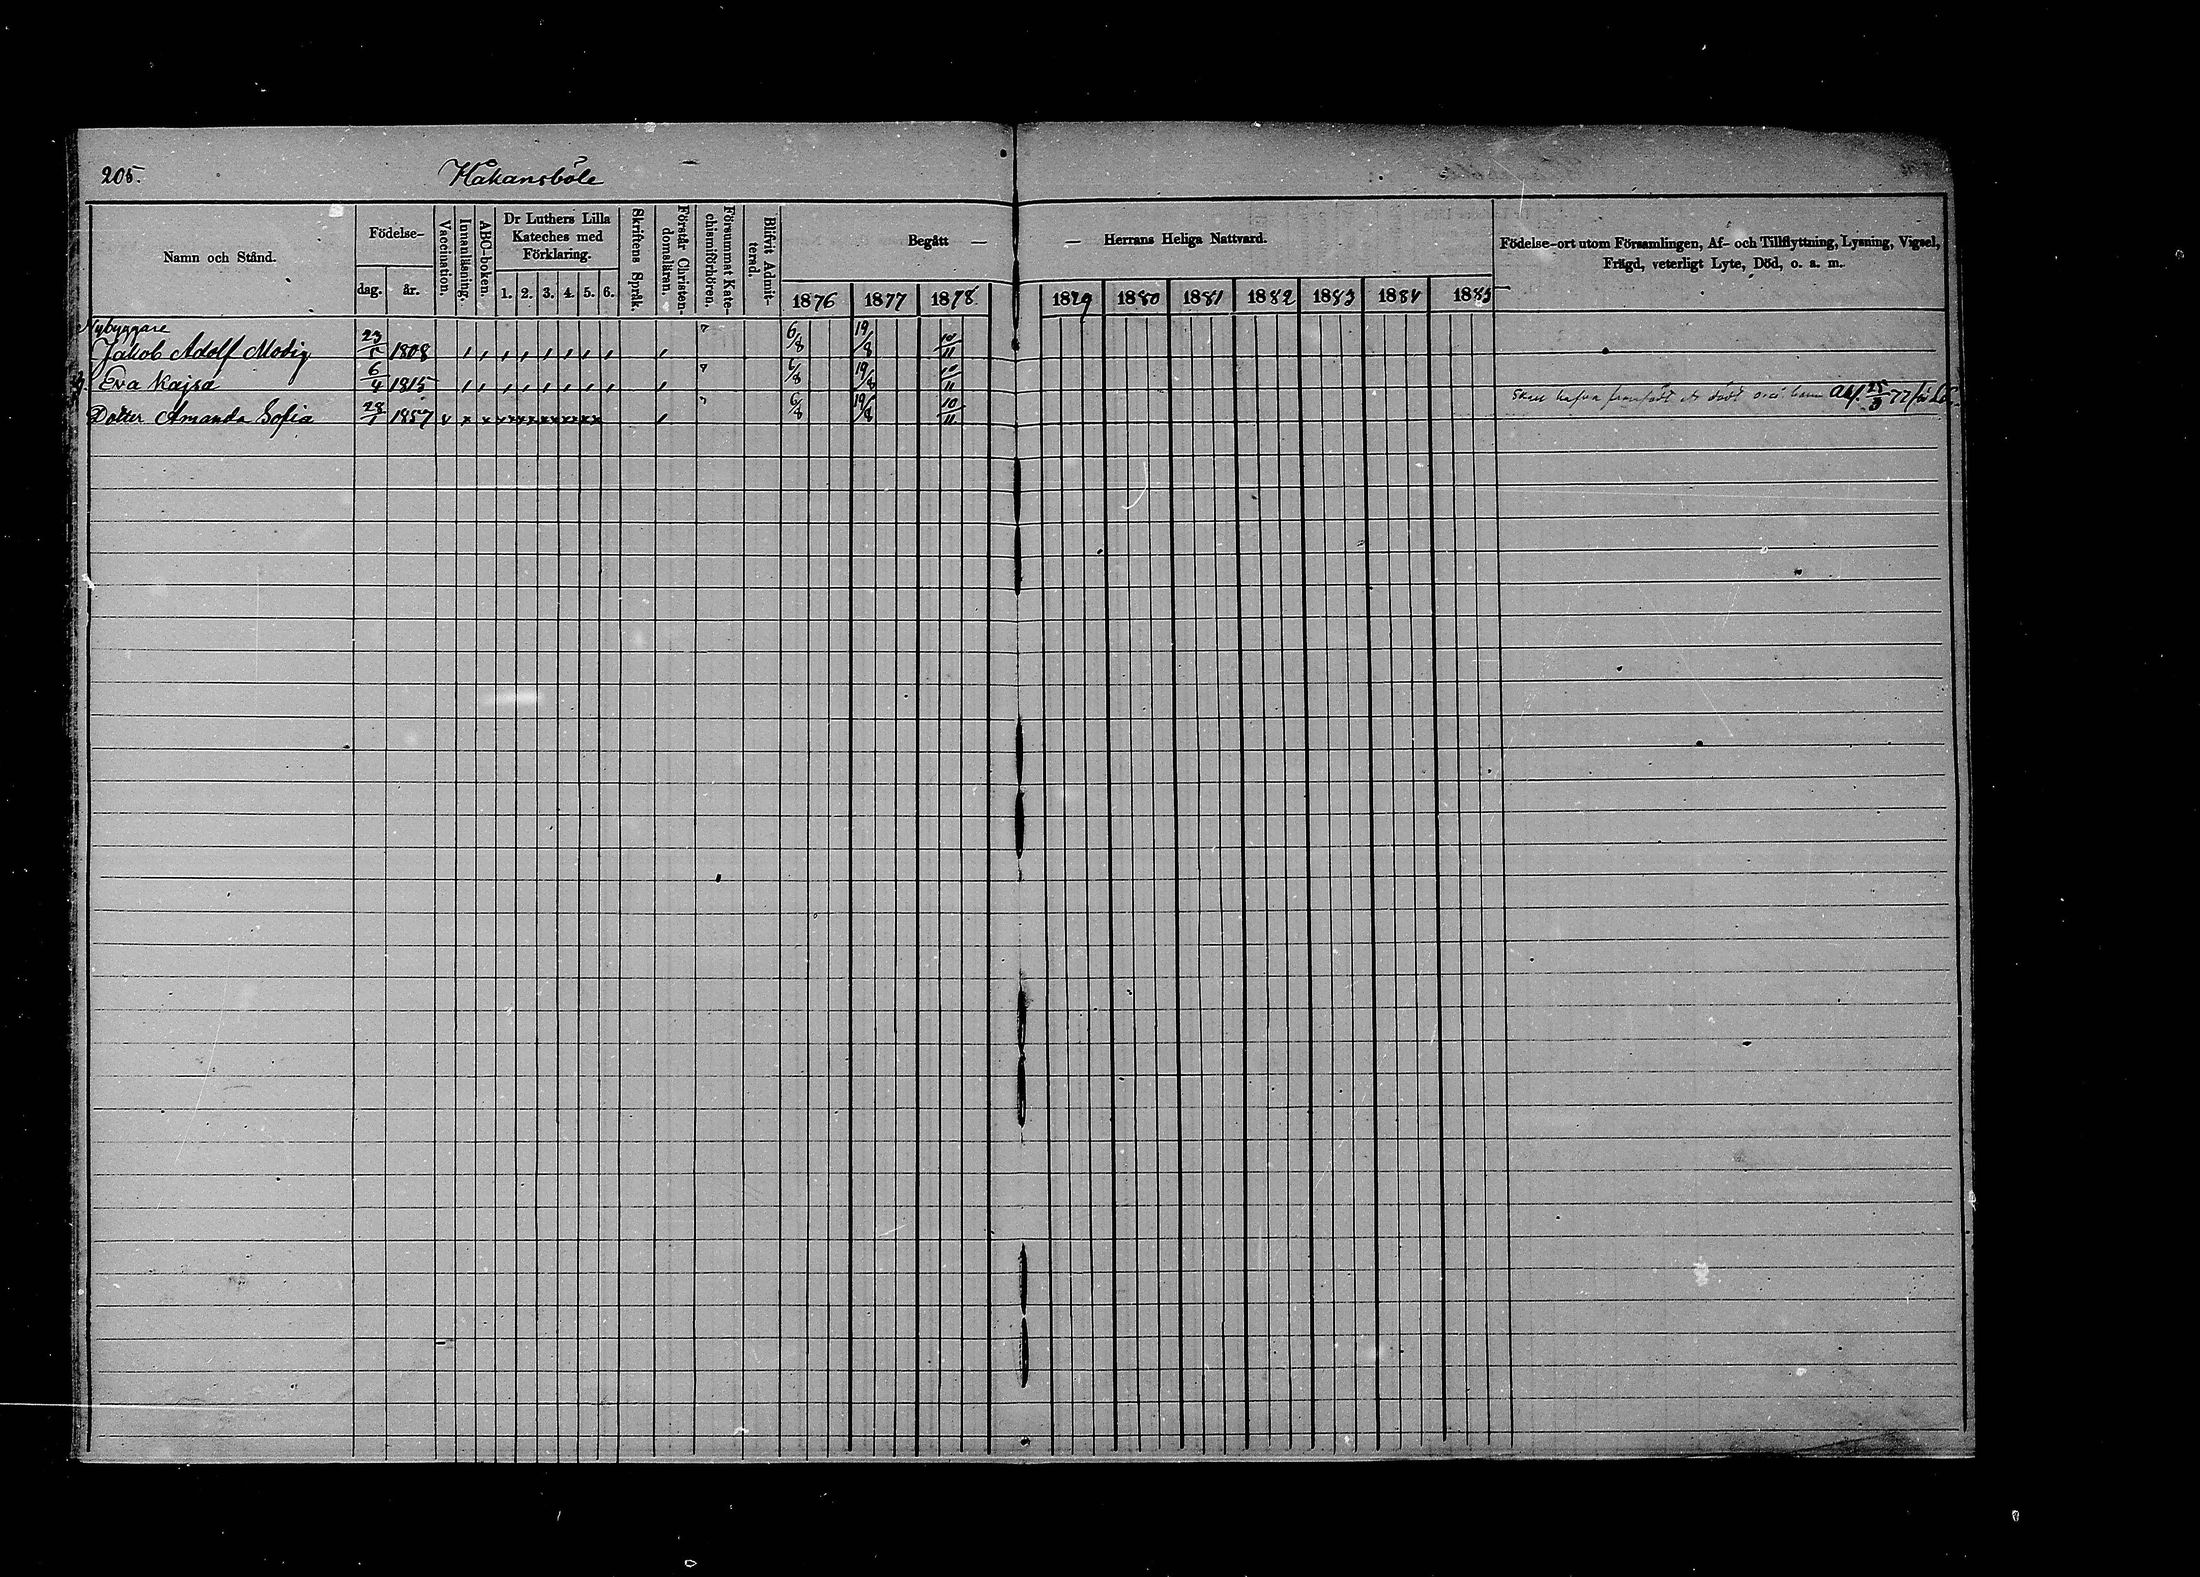 205.
Håkansböle
Namn och Stånd.
Födelse-
dag.
år.
Vaccination.
Innanläsning.
ABC-boken.
Dr Luthers Lilla
Kateches med
Förklaring.
1. 2. 3. 4. 5. 6.
Skriftens Språk.
Förstår Christen-
domsläran.
Försummat Kate-
chismiförhören.
Blifvit Admit-
terad.
Begått —
— Herrans Heliga Nattvard.
1876 1877 1878 1879 1880 1881 1882 1883 1884 1885
Födelse-ort utom Församlingen, Af- och Tillflyttning, Lysning, Vigsel,
Frägd, veterligt Lyte, Död, o. a. m.
Nybyggare
Jakob Adolf Modig 23/5 1808 6/8 19/8 10/11
Eva Kajsa 6/4 1815 6/8 19/8 10/11
Dotter Amanda Sofia 28/1 1857 v x x x x x x x x 6/8 19/8 10/11
Skall hafva framfödt ett dödt barn 25/3 77